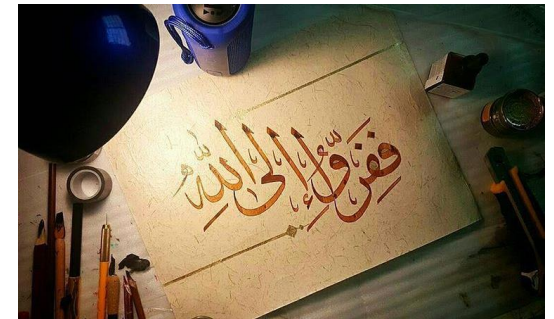 ففرّوا إلى اللّهِ